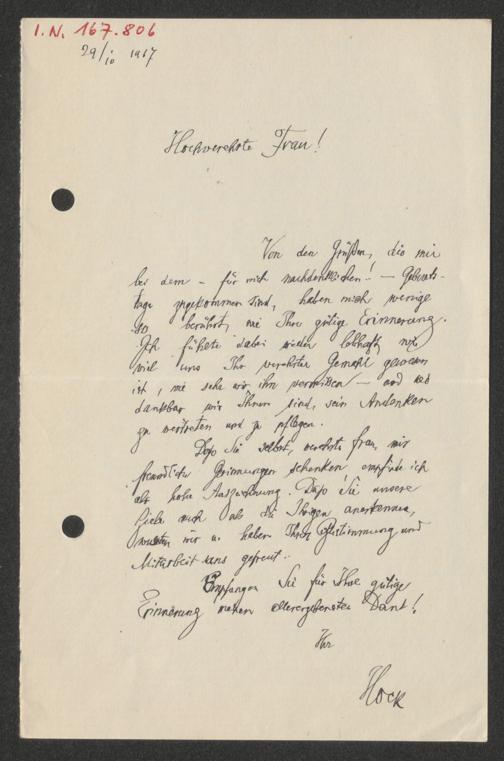 I.N. 167.806
29/10 1967
Hochverehrte Frau!
Von den Grüßen, die mir
bei dem – für mich nachdenklichen! – Geburts-
tage zugekommen sind, haben mich wenige
so berührt, wie Ihre gütige Erinnerung.
Ich fühlte dabei wieder lebhaft, was
viel uns Ihr verehrter Gemahl gewesen
ist, wie sehr wir ihn vermissen – und wie
dankbar wir Ihnen sind, sein Andenken
zu vertreten und zu pflegen.
Daß Sie selbst, verehrte Frau, mir
freundliche Erinnerungen schenken empfinde ich
als hohe Auszeichnung. Daß Sie unsere
Liebe auch als die Ihrigen anerkennen,
wußten wir u. haben Ihrer Zustimmung und
Mitarbeit uns gefreut.
Empfangen Sie für Ihre gütige
Erinnerung meinen allerergebensten Dank!
Ihr
Hock